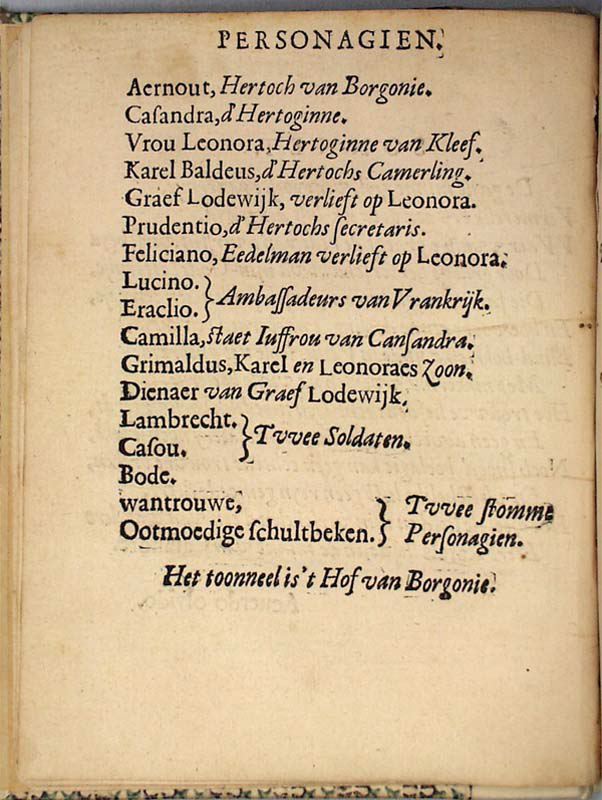 PERSONAGIEN.
Aernout, Hertoch van Borgonie.
Caſandra, d'Hertoginne.
Vrou Leonora, Hertoginne van Kleef.
Karel Baldeus, d'Hertochs Camerling.
Graef Lodewijk, verlieft op Leonora.
Prudentio, d'Hertochs ſecretaris.
Feliciano, Eedelman verlieft op Leonora.
Lucino.
Eraclio. } Ambaſſadeurs van Vrankrijk.
Camilla, ſtaet Iuffrou van Canſandra.
Grimaldus, Karel en Leonoraes Zoon.
Dienaer van Graef Lodewijk.
Lambrecht.
Caſou. } Tvvee Soldaten.
Bode.
wantrouwe, } Tvvee ſtomme
Ootmoedige ſchultbeken. } Perſonagien.
Het toonneel is 't Hof van Borgonie.